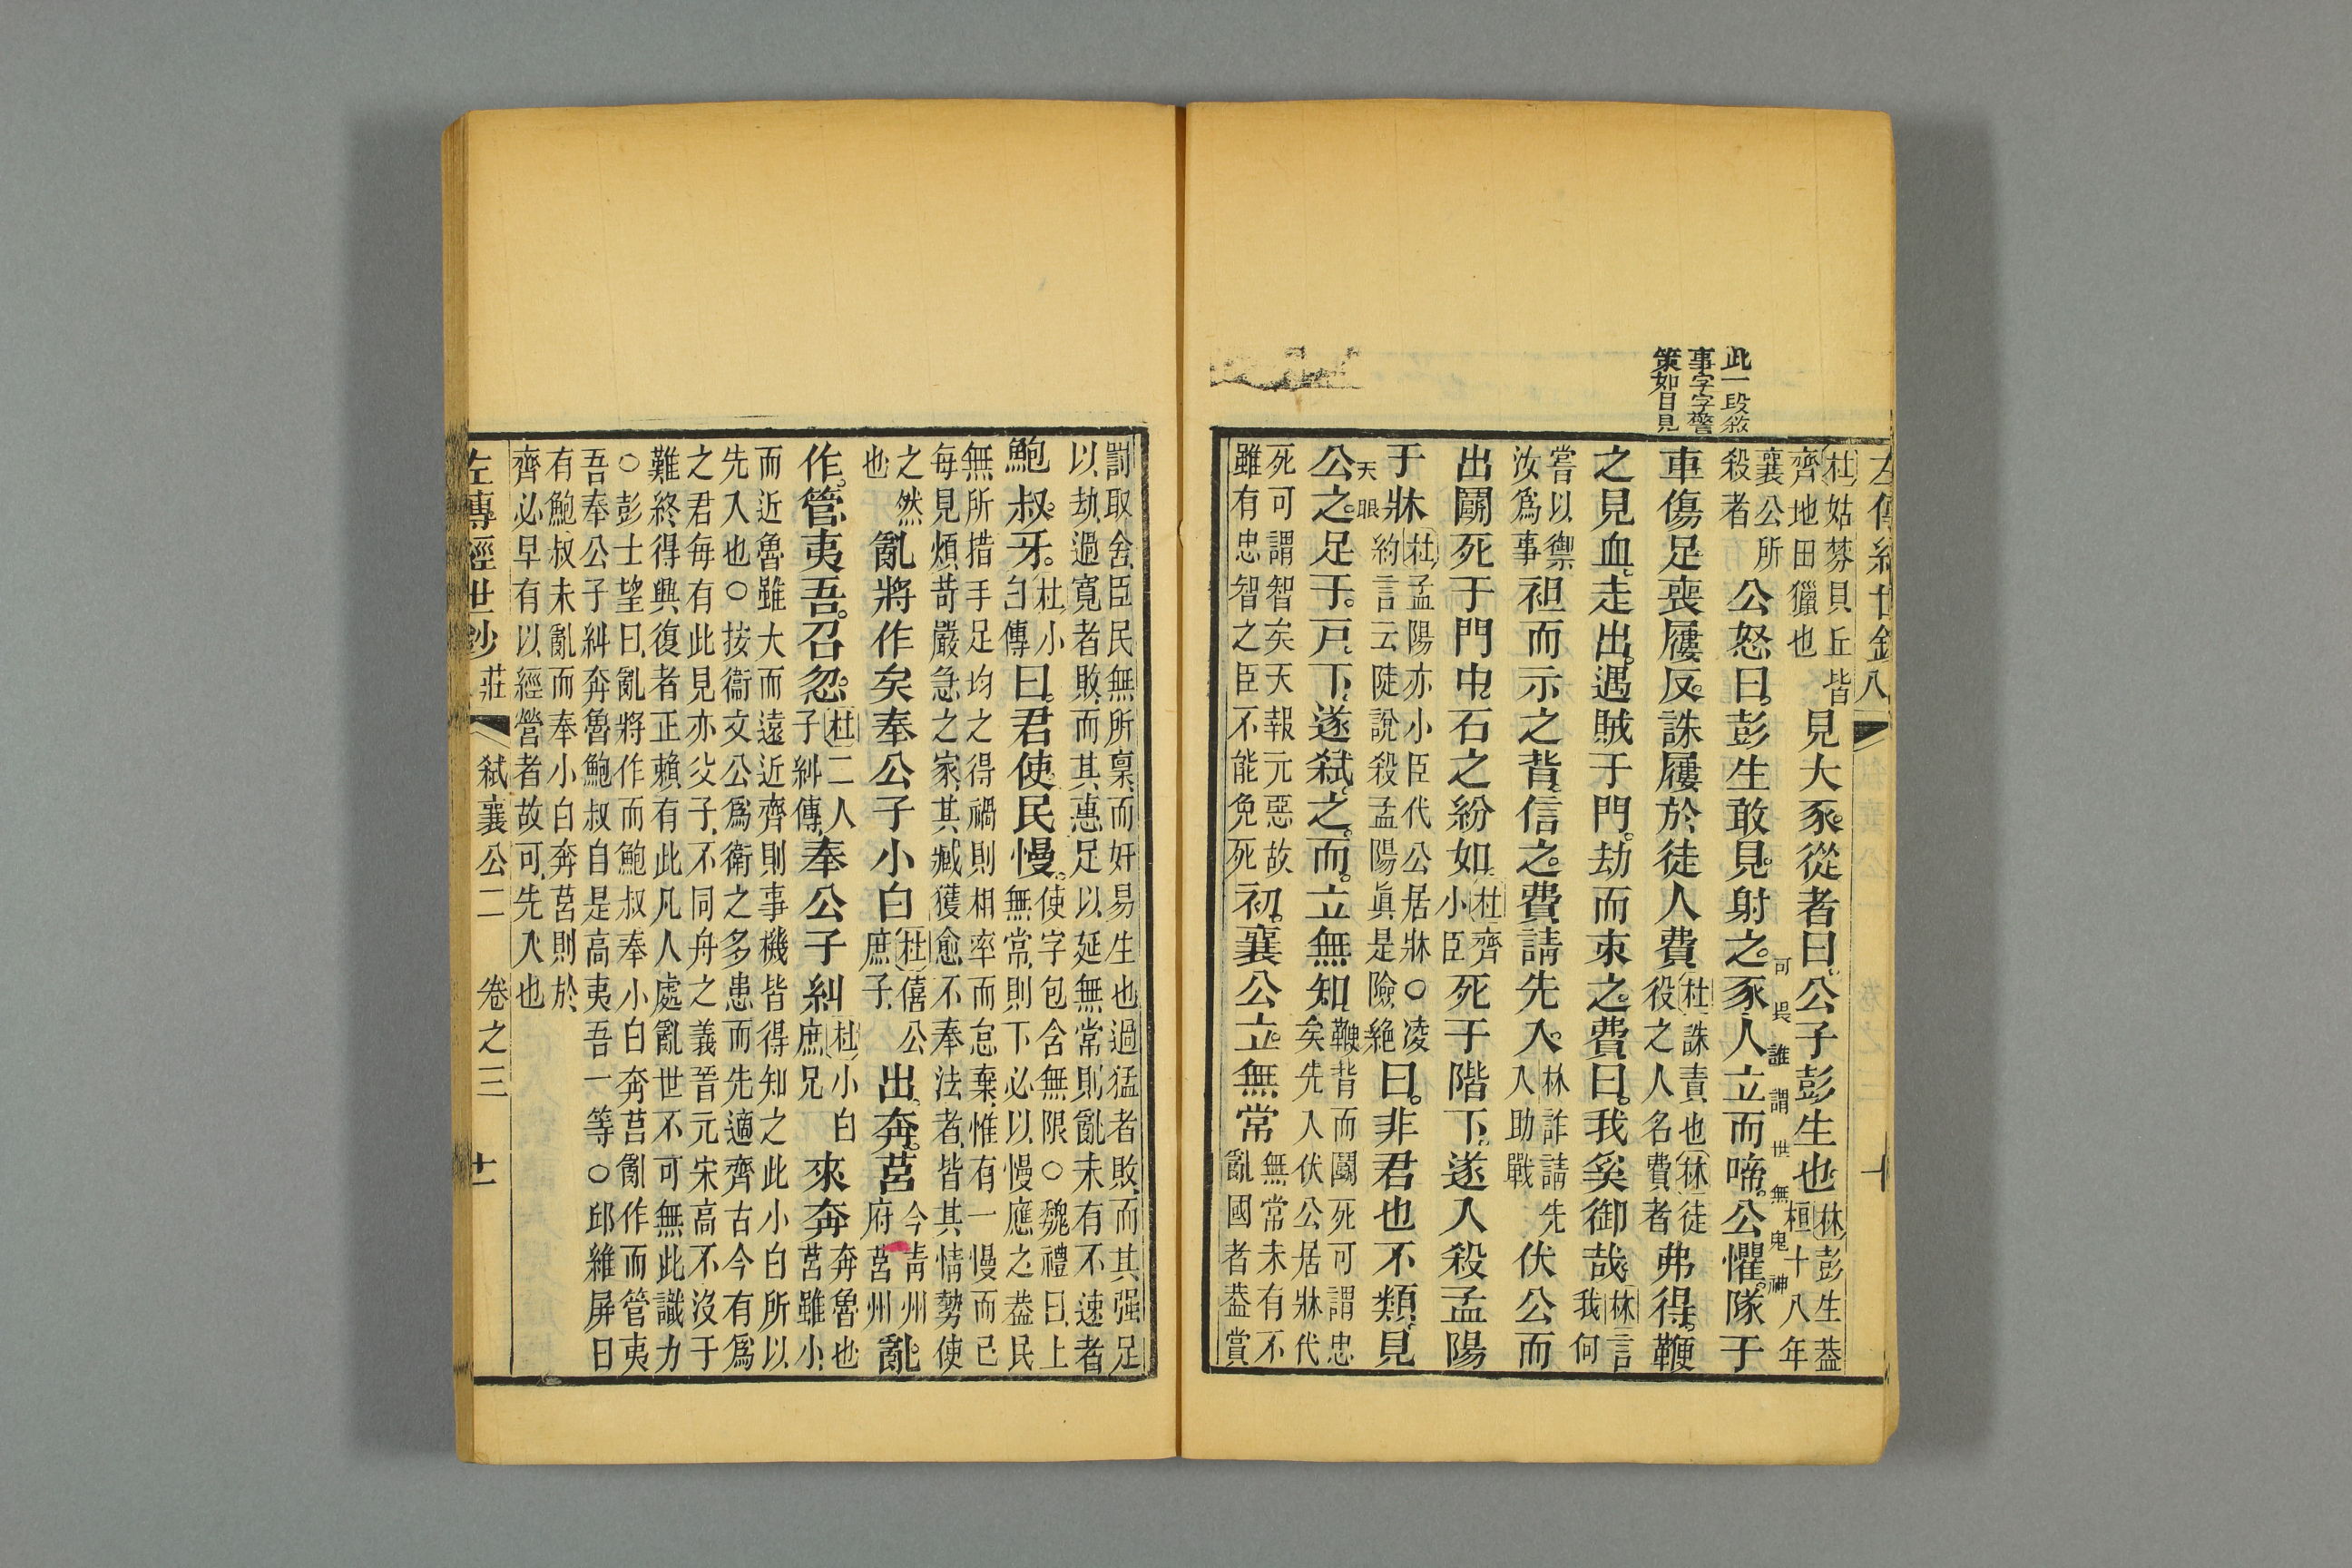 此一段敘
事字字警
策如目見
杜姑棼貝丘皆
齊地田獵也
見大豕從者曰公子彭生也
林彭生葢
桓十八年
襄公所
殺者
公怒曰彭生敢見射之豕人立而啼公懼隊于
可畏誰謂世無鬼神
車傷足喪屨反誅屨於徒人費
杜誅責也林徒
役之人名費者
弗得鞭
之見血走出遇賊于門劫而束之費曰我奚御哉
林言
我何
嘗以禦
汝爲事
袒而示之背信之費請先入
林詐請先
入助戰
伏公而
出鬬死于門中石之紛如
杜齊
小臣
死于階下遂入殺孟陽
于牀
天眼
杜孟陽亦小臣代公居牀○凌
約言云陡說殺孟陽眞是險絶
曰非君也不類見
公之足于戸下遂弒之而立無知
鞭背而鬬死可謂忠
矣先入伏公居牀代
死可謂智矣天報元惡故
雖有忠智之臣不能免死
初襄公立無常
無常未有不
亂國者葢賞
罰取舍臣民無所禀而奸易生也過猛者敗而其强足
以劫過寛者敗而其惠足以延無常則亂未有不速者
鮑叔牙
杜小
白傅
曰君使民慢
使字包含無限○魏禮曰上
無常則下必以慢應之葢民
無所措手足均之得禍則相率而怠棄惟有一慢而已
每見煩苛嚴急之家其臧獲愈不奉法者皆其情勢使
之然
也
亂將作矣奉公子小白
杜僖公
庶子
出奔莒
今靑州
府莒州
亂
作管夷吾召忽
杜二人
子糾傅
奉公子糾
杜小白
庶兄
來奔
奔魯也
莒雖小
而近魯雖大而遠近齊則事機皆得知之此小白所以
先入也○按衞文公爲衞之多患而先適齊古今有爲
之君每有此見亦父子不同舟之義晉元宋高不沒于
難終得興復者正賴有此凡人處亂世不可無此識力
○彭士望曰亂將作而鮑叔奉小白奔莒亂作而管夷
吾奉公子糾奔魯鮑叔自是高夷吾一等○邱維屏曰
有鮑叔未亂而奉小白奔莒則於
齊必早有以經營者故可先入也
左傳經世鈔 莊 弒襄公二 卷之三 十一